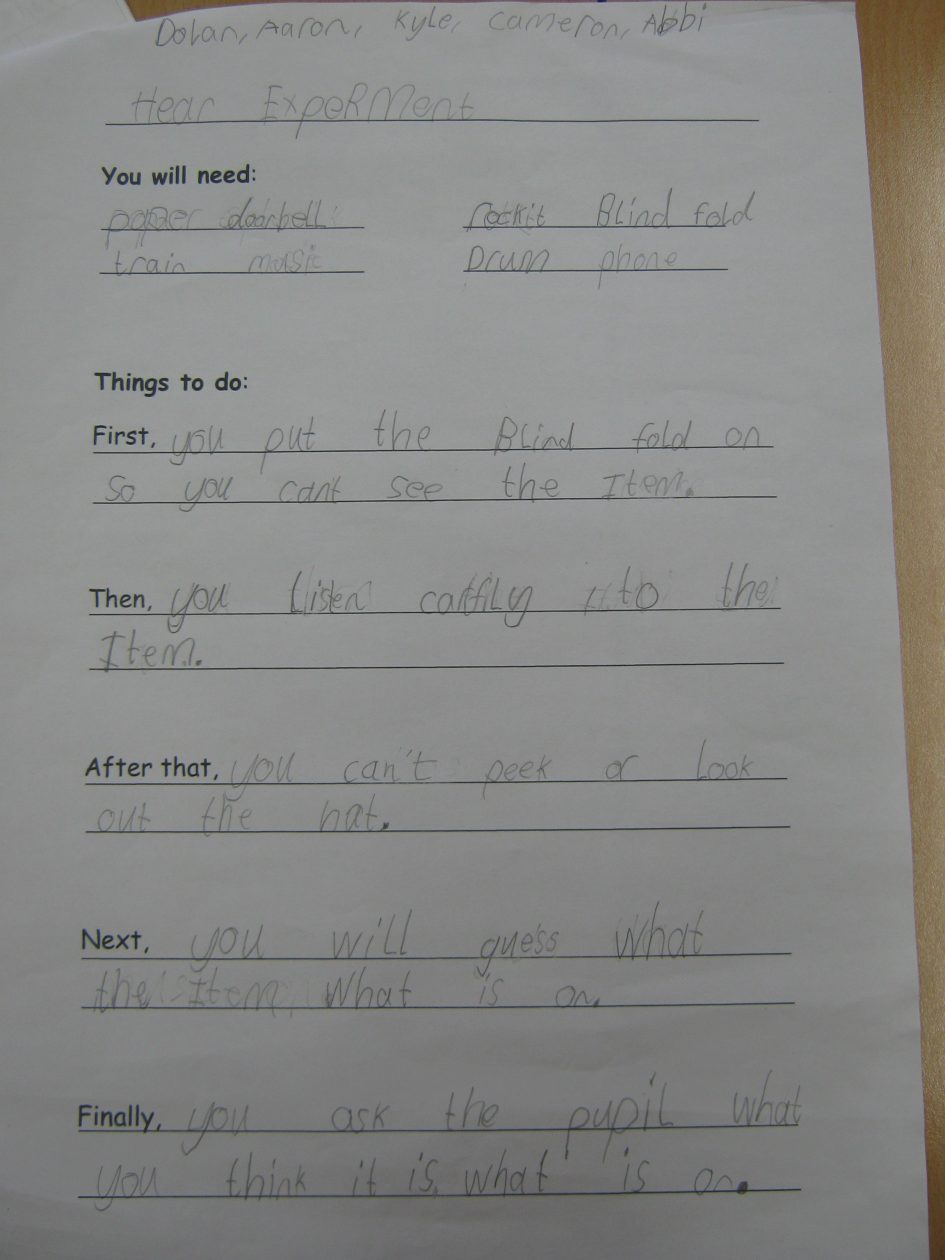 Dolan, Aaron, Kyle, Cameron, Abbi
Hear ExpeRMent
You will need:
paper doorbell rockit Blind fold
train music Drum phone
Things to do:
First, you put the Blind fold on
so you cant see the Item.
Then, you listen carfily to the
Item.
After that, you can't peek or look
out the hat.
Next, you will guess what
the Item what is on.
Finally, you ask the pupil what
you think it is what is on.